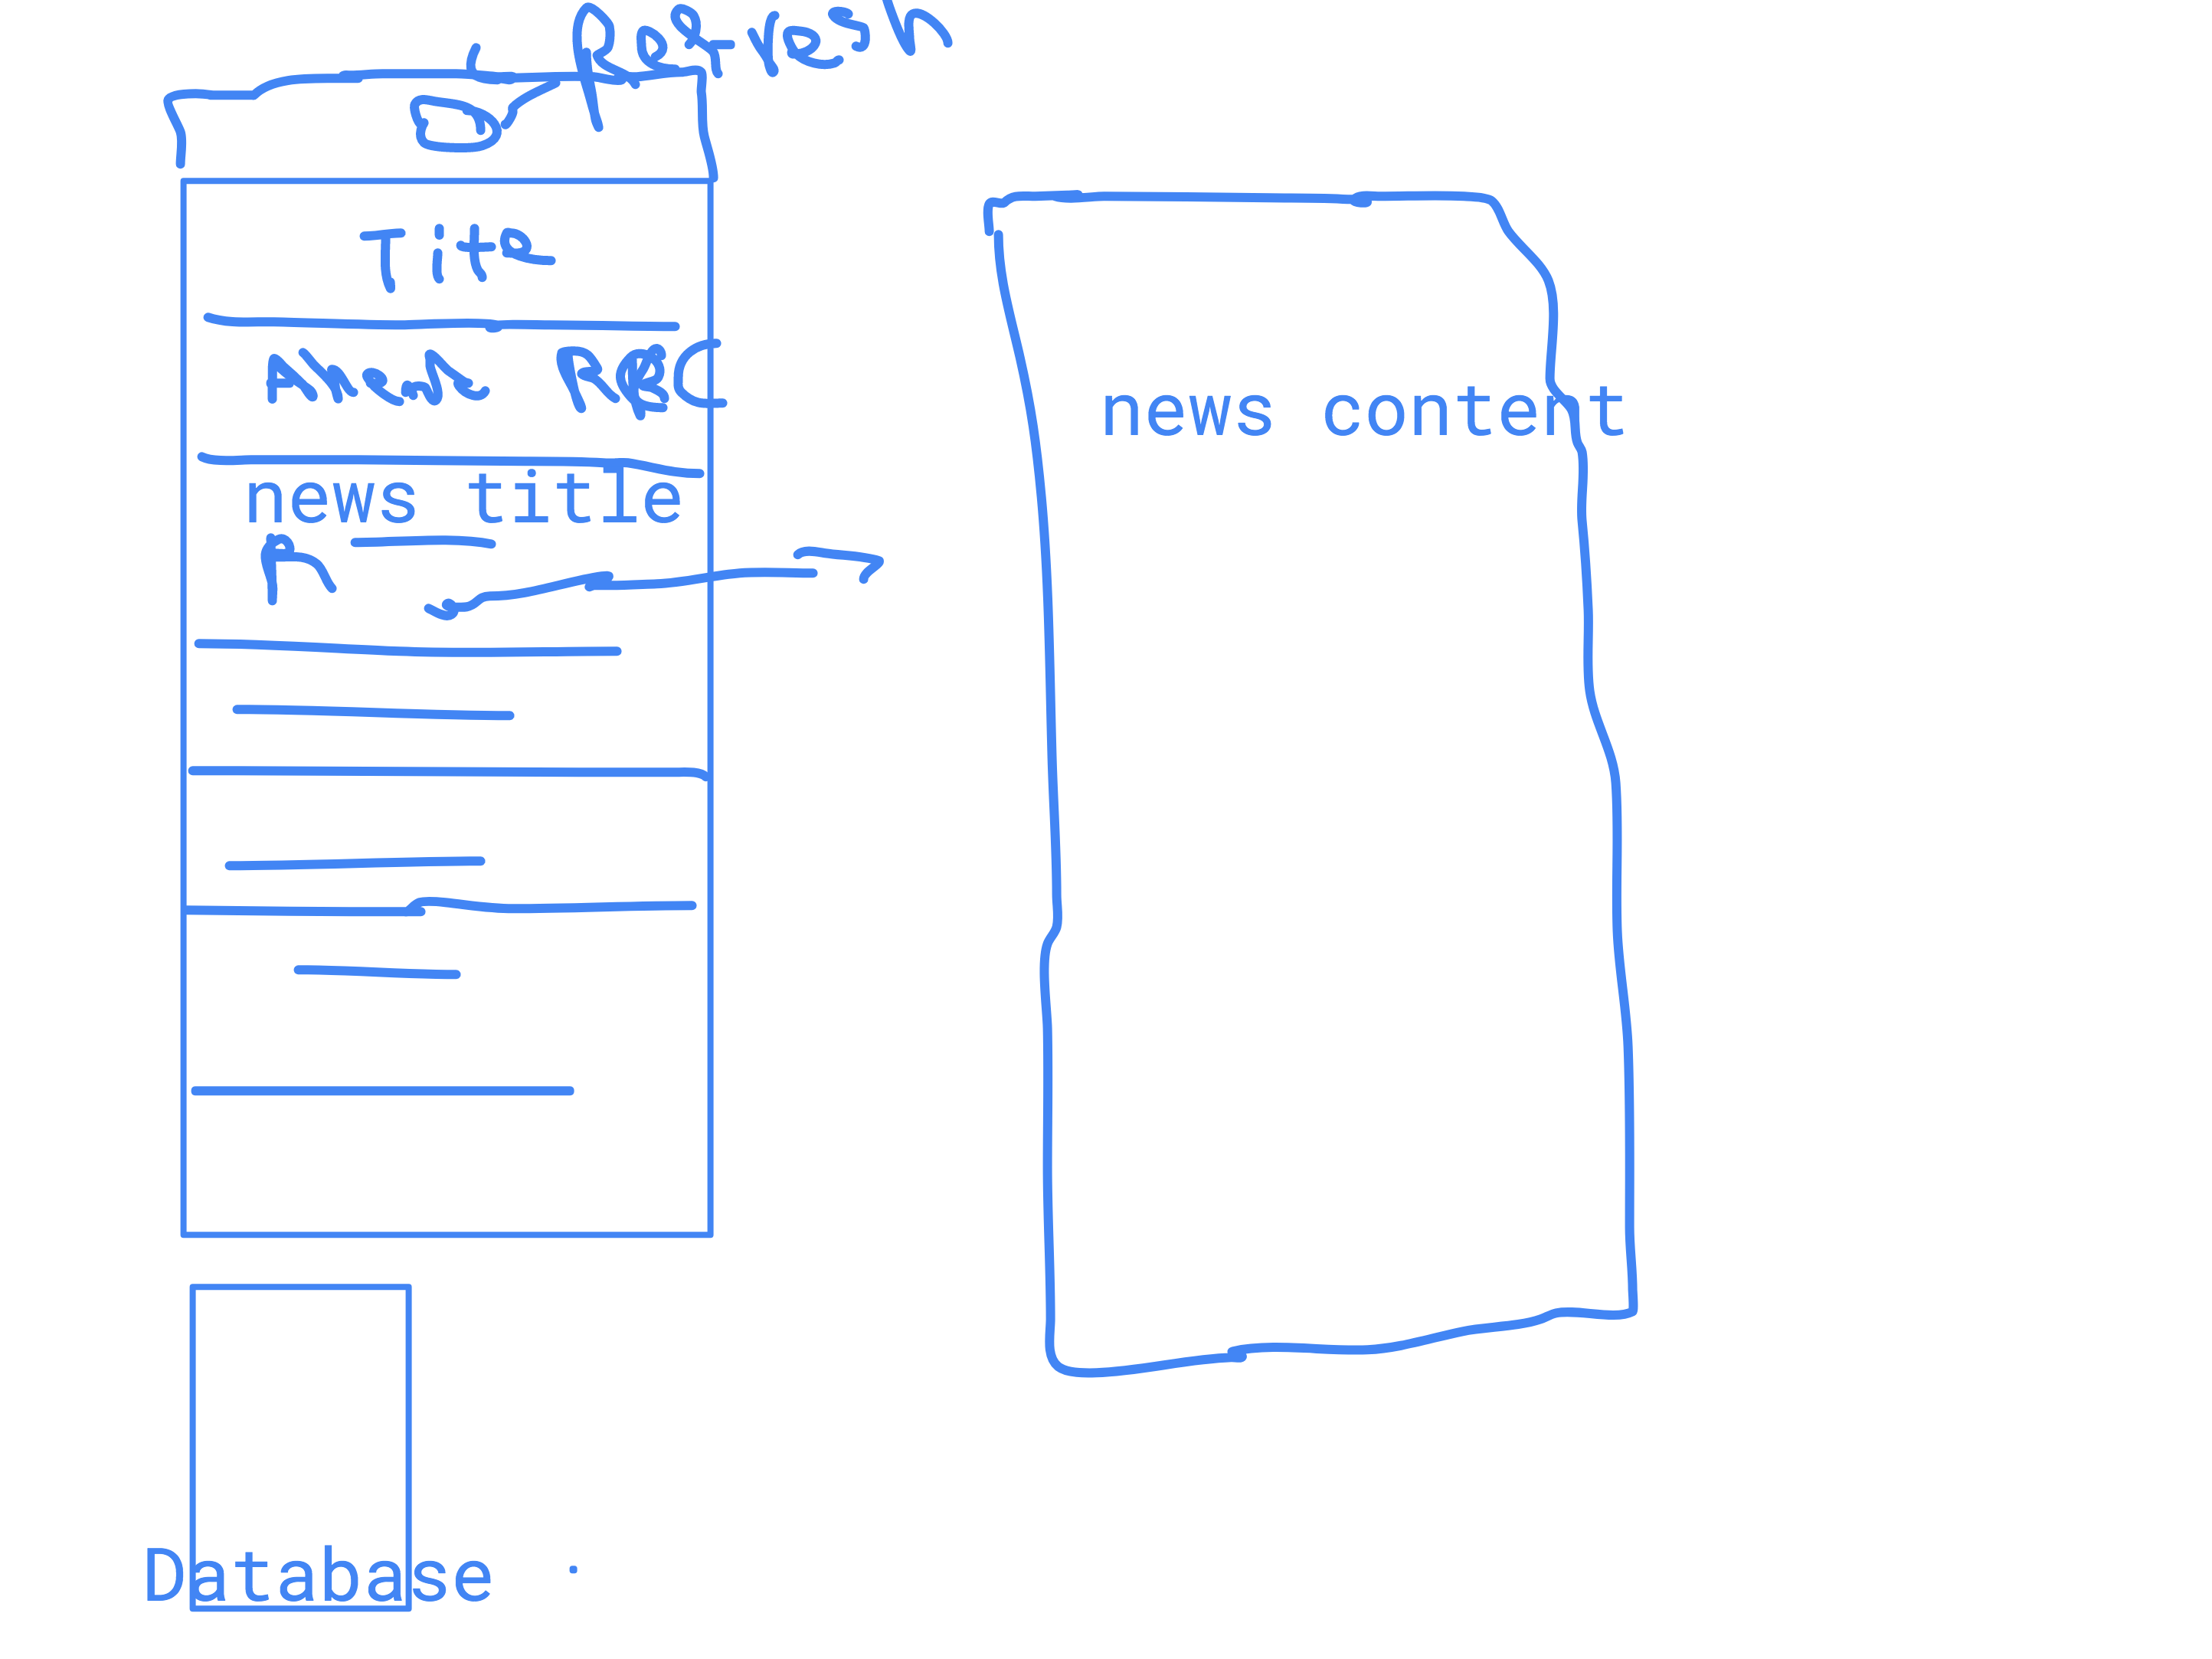 Refresh
Title
news title
R
news content
Database